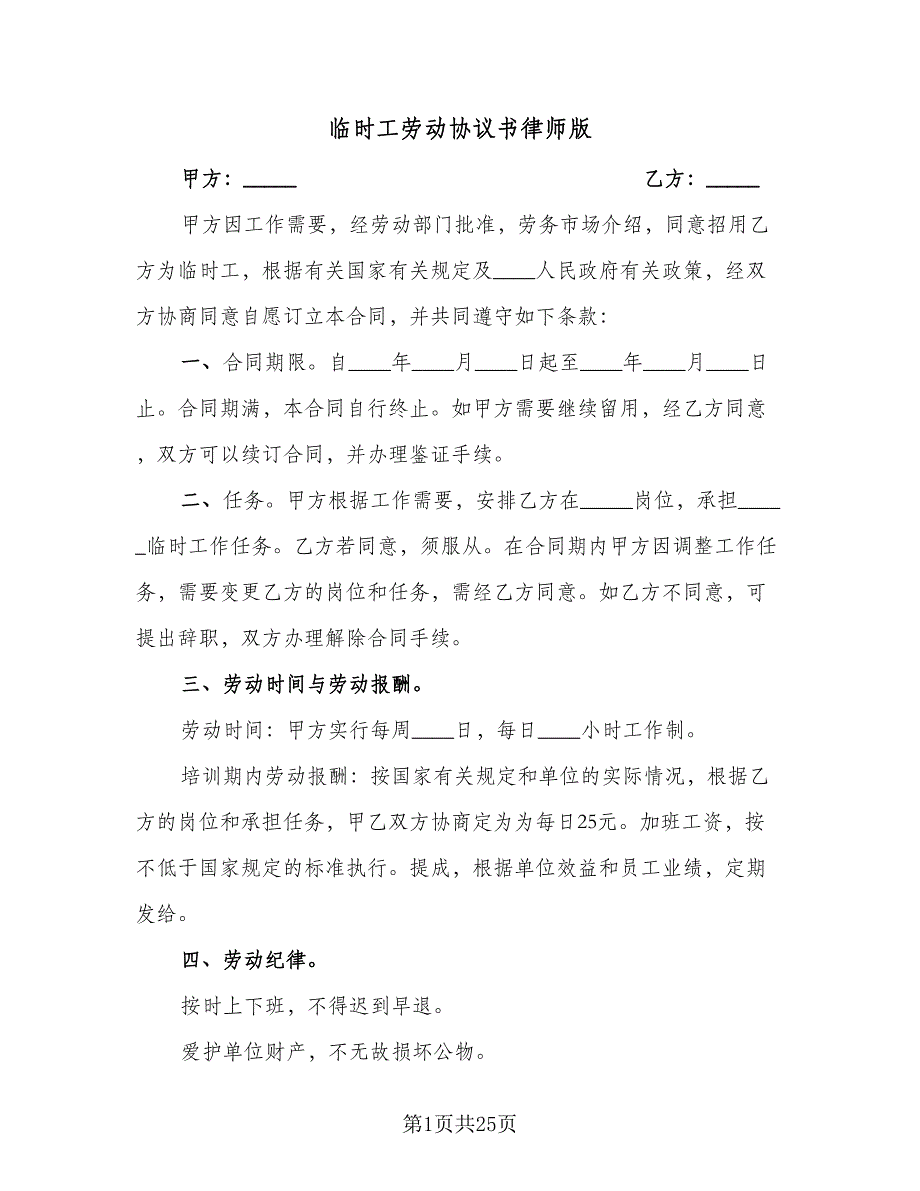 临时工劳动协议书律师版
甲方：_____ 乙方：_____
甲方因工作需要，经劳动部门批准，劳务市场介绍，同意招用乙
方为临时工，根据有关国家有关规定及____人民政府有关政策，经双
方协商同意自愿订立本合同，并共同遵守如下条款：
一、合同期限。自____年____月____日起至____年____月____日
止。合同期满，本合同自行终止。如甲方需要继续留用，经乙方同意
，双方可以续订合同，并办理鉴证手续。
二、任务。甲方根据工作需要，安排乙方在_____岗位，承担____
_临时工作任务。乙方若同意，须服从。在合同期内甲方因调整工作任
务，需要变更乙方的岗位和任务，需经乙方同意。如乙方不同意，可
提出辞职，双方办理解除合同手续。
三、劳动时间与劳动报酬。
劳动时间：甲方实行每周____日，每日____小时工作制。
培训期内劳动报酬：按国家有关规定和单位的实际情况，根据乙
方的岗位和承担任务，甲乙双方协商定为为每日25元。加班工资，按
不低于国家规定的标准执行。提成，根据单位效益和员工业绩，定期
发给。
四、劳动纪律。
按时上下班，不得迟到早退。
爱护单位财产，不无故损坏公物。
第1页共25页